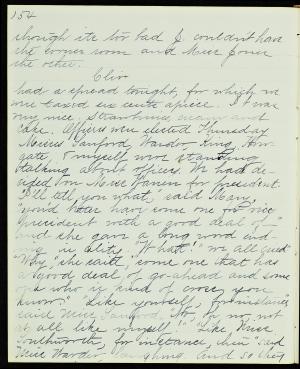 154
though it's too bad I couldn't have
the corner room and Miss Jones
the other.
Clio
had a spread tonight, for which we
were taxed six cents apiece. It was
very nice. Strawberries, cream and
cake. Officers were elected Thursday
Misses Sanford, Warder, King,
gate, & myself were standing
talking about officers. We had de-
cided on Miss for president.
"I'll tell you what," said Mary,
"would rather have some one for vice
president with a good deal of"
and she gave a long word end-
ing in ality. "What?" we all
"Why," she saith "some one that has
a good deal of go-ahead and some
one who is kind of cross, you
know." "Like yourself, for instance,"
said Miss Sanford. "No, oh no, not
at all like myself!" "Like Miss
Southworth, for instance, then" said
Miss Warder, laughing. And so they